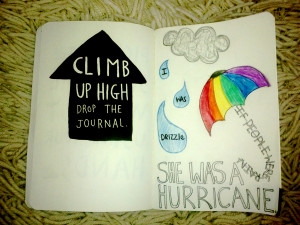 CLIMB
UP HIGH
DROP THE
JOURNAL.
IF PEOPLE WERE
RAIN
I
WAS
DRIZZLE
SHE WAS A
HURRICANE